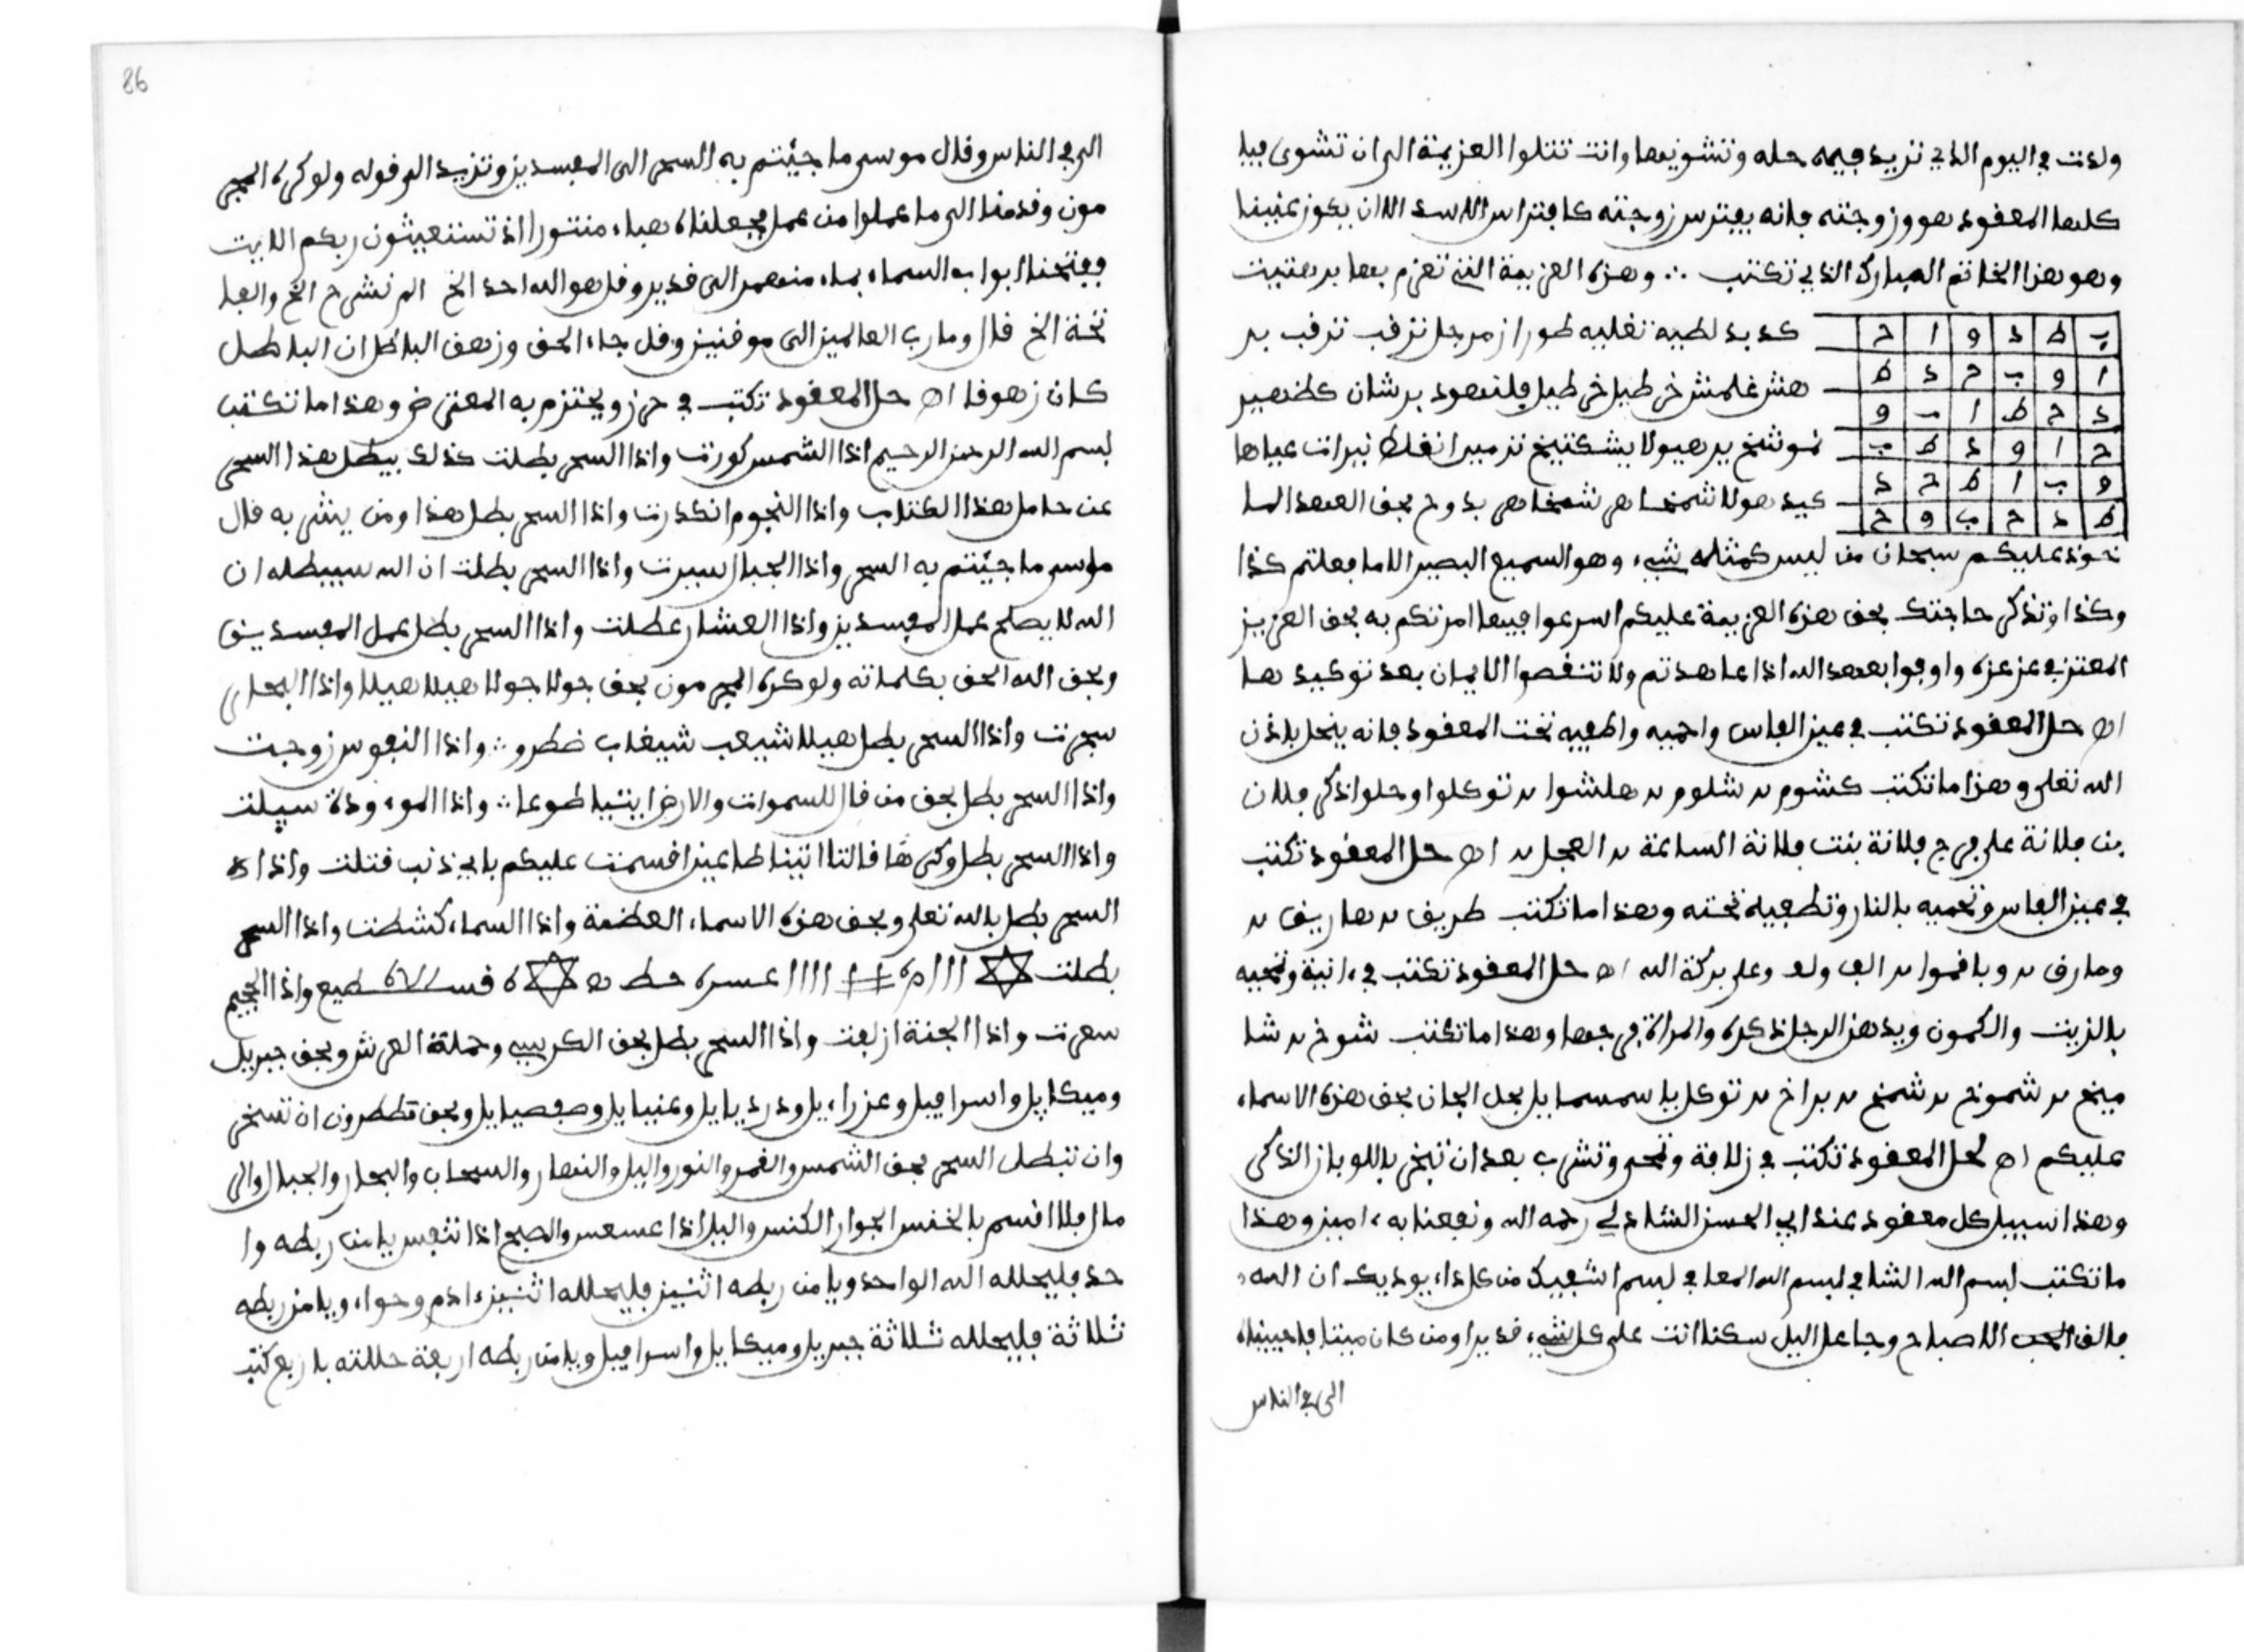 ولدت في اليوم الذي تريد فيه حله وتشويها وانت تتلوا العزيمة الى ان تشوى فيا
كلها المعقود هو وزوجته فانه يفترس زوجته كافتراس الاسد الا ان يكون عنينا
وهو هذا الخاتم المبارك الذي تكتب ∴ وهذه العزيمة التي تعزم بها برهتيت
ب ط د و ا ح
ا و ب ح د ط
د ح ط ا ب و
ح ا و د ط ب
و ب ا ط ح د
ط د ح ب و ح
كد بد لطيه تغليه طوران مزجل ترقب ترقب بر
هش غلمش خي طيل خي طيل فلنهود برشان كظهير
نموشلخ برهيولا بشكيلخ نزمير انغلط نيرات عياها
كيد هولا شمخاهر شمخاهر بدوح بحق العهد الما
خوذ عليكم سبحان من ليس كمثله شيء وهو السميع البصير الا ما فعلتم كذا
وكذا وتذكر حاجتك بحق هذه العزيمة عليكم اسرعوا فيما امرتكم به بحق العزيز
المعتز في عز عزه واوفوا بعهد الله اذا عاهدتم ولا تنقضوا الايمان بعد توكيدها
اه حل المعقود تكتب في عين الفاس واحميه واطفيه تحت المعقود فانه ينحل باذن
الله تعلى وهذا ما تكتب كشوم بد شلوم بد هلشوا بد توكلوا وحلوا ذكر فلان
بن فلانة على فرج فلانة بنت فلانة الساعة بد العجل بد اه حل المعقود تكتب
في عين الفاس وتحميه بالنار وتطفيه تحته وهذا ما تكتب طريف بد هاريف بد
ومارق بد وباقموا بد الف ولف وعلى بركة الله اه حل المعقود تكتب في ءانية وتمحيه
بالزيت والكمون ويدهن الرجل ذكره والمراة فرجها وهذا ما تكتب شوخ بد شا
ميخ بد شموخ بد شمخ بد براخ بد توكل يا سمسمايل بحل الجان بحق هذه الاسماء
عليكم اه لحل المعقود تكتب في زلافة وتمحى وتشرب بعد ان تبخر باللوبان الذكر
وهذا سبيل كل معقود عند ابي الحسن الشاذلي رحمه الله ونفعنا به ءامين وهذا
ما تكتب بسم الله الشافي بسم الله المعافي بسم الله شفيك من كل داء يوديك ان الله
فالق الحب الاصباح وجاعل اليل سكنا انت على كل شيء قدير او من كان ميتا فاحييناه
الى في الناس
86
الى في الناس وقال موسى ما جئتم به السحر الى المفسدين وتزيد الى قوله ولو كره المجر
مون وقدمنا الى ما عملوا من عمل فجعلناه هباء منثورا اذ تستغيثون ربكم الايت
ففتحنا ابواب السماء بماء منهمر الى قدير وقل هو الله احد الخ الم نشرح الخ والفا
تحة الخ قال وما رب العالمين الى موقنين وقل جاء الحق وزهق الباطل ان الباطل
كان زهوقا اه حل المعقود تكتب في حرز ويحتزم به المعترض وهذا ما تكتب
بسم الله الرحمن الرحيم اذا الشمس كورت واذا السحر بطلت كذلك يبطل هذا السحر
عن حامل هذا الكتاب واذا النجوم انكدرت واذا السحر بطل هذا ومن يشرب قال
موسى ما جئتم به السحر واذا الجبال سيرت واذا السحر بطلت ان الله سيبطله ان
الله لا يصلح عمل المفسدين واذا العشار عطلت واذا السحر بطل عمل المفسدين
وبحق الله الحق بكلماته ولو كره المجرمون بحق جولا جولا هيلا هيلا واذا البحار
سجرت واذا السحر بطل هيلا شيعب شيعاب خطرو ∴ واذا النفوس زوجت
واذا السحر بطل بحق من قال للسموات والارض ايتيا طوعا ∴ واذا الموءودة سيلت
واذا السحر بطل وكرها قالتا اتينا طايعين اقسمت عليكم باي ذنب قتلت واذا
السحر بطل بالله تعلى وبحق هذه الاسماء العظمة واذا السماء كشطت واذا السحر
بطلت ✡ ااا # اااا ✡ واذا الجحيم
سعرت واذا الجنة ازلفت واذا السحر بطل بحق الكرسي وحملة العرش وبحق جبريل
وميكايل واسرافيل وعزراءيل ودرديايل وعنيايل وصفصيايل وبحق قطلطرون ان تسخر
وان تبطل السحر بحق الشمس والقمر والنور واليل والنهار والسحاب والبحار والجبال والر
مال فلا اقسم بالخنس الجوار الكنس واليل اذا عسعس والصبح اذا تنفس يا من ربطه وا
حد فليحلله الله الواحد ويا من ربطه اثنين فليحلله اثنين ءادم وحواء ويا من ربطه
ثلاثة فليحلله ثلاثة جبريل وميكايل واسرافيل ويا من ربطه اربعة حللته باربع كتب